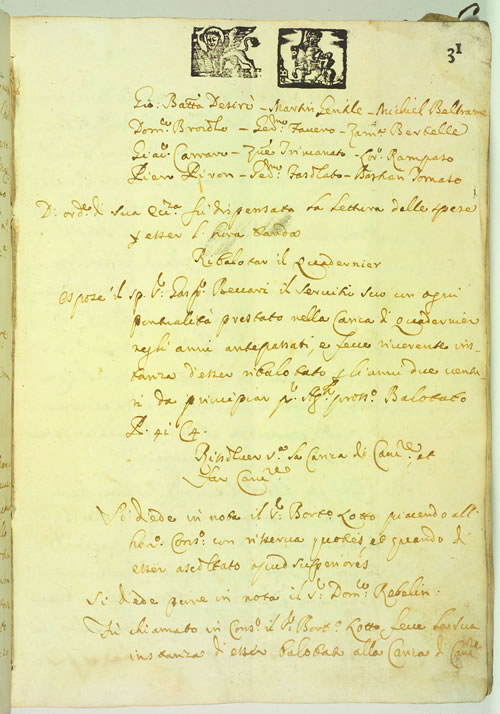 31
Gio: Batta Desirò - Martin Gentle - Michiel Beltrame
Dom:co Brordo - Ged:mo Favero - Zama: Bertelle
Giac:o Carraro - Zue Trivixanato - Lor:o Rampaso
Piero Piron - Ged:mo Fasolato - Bastian Pomato
D: ord:e di Sua Ecc:za fu dispensata la lettura delle spese
p esser l' hora tarda
Ribalotar il Quadernier
Espose il sp: S: Gasp:o Beccari il servitio suo con ogni
pontualità prestato nella Carica di Quadernier
negli anni antepassati, e fece riverente ins-
tanza d'esser ribalotato p li anni due ventu-
ri da principiar p:o Ag:to pross:o Balotato
P. 41 C4.
Rissolver s:a la Carica di Canc:re et
Far Canc:re
Si diede in nota il S: Bort:o Lotto piacendo all'
hon:o Cons:o con risserva et quando di
esser ascoltato apud superiores
Si diede pure in nota il S: Dom:co Rebelin:
Fù chiamato in Cons:o il S: Bort:o Lotto fece la sua
instanza d'esser balotato alla Carica di Canc:re